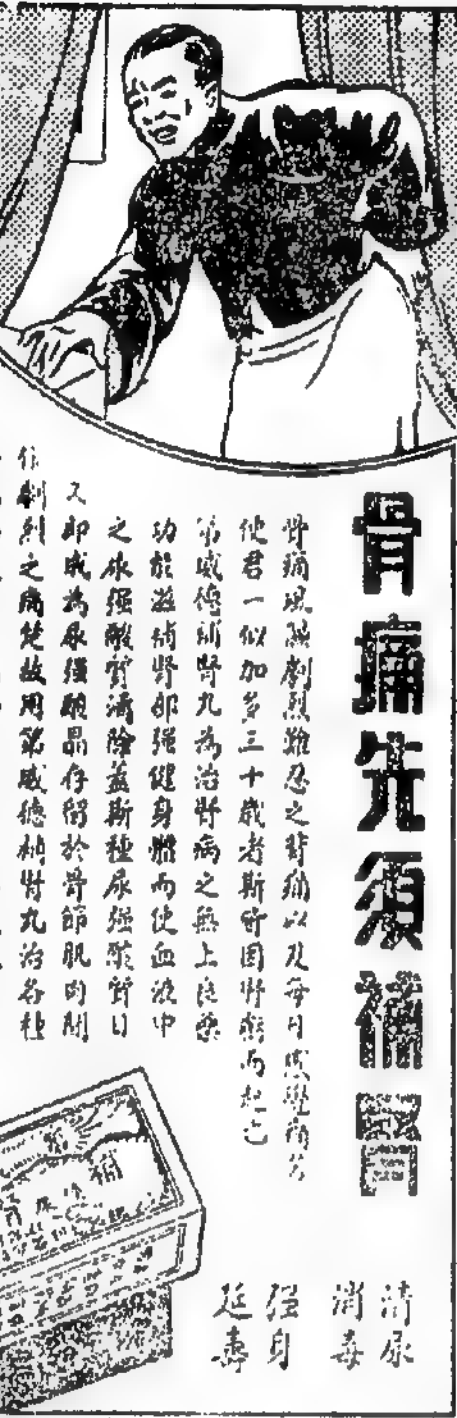 骨痛先須補腎
骨痛風濕劇烈難忍之背痛以及每日感覺痛苦
使君一似加多三十歲者斯皆因腎弱而起也
第威德補腎丸為治腎病之無上良藥
功能滋補腎部强健身體而使血液中
之尿强酸質清除蓋斯種尿强酸質日
久即成為尿强酸晶存留於骨節肌肉間
作劇烈之痛楚故用第威德補腎丸治各種
清尿
消毒
强身
延壽